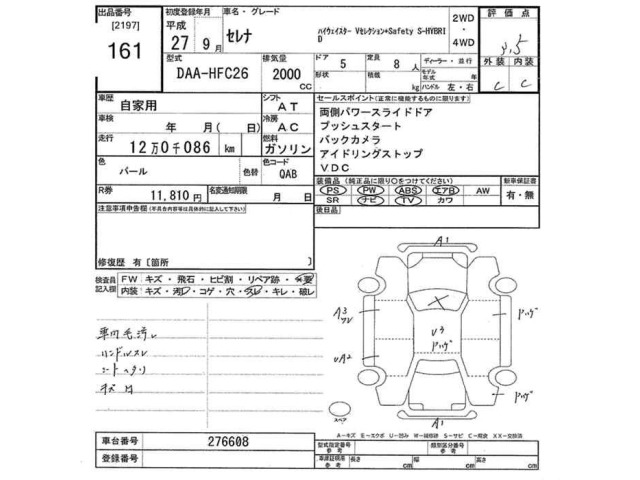 出品番号 初度登録年月 車名・グレード 2WD ・ 4WD 評価点
[2197] 平成 ハイウェイスター Vセレクション+Safety S-HYBRI
161 27年 9月 セレナ D
型式 排気量 ドア 定員 ディーラー・並行 外装 内装
DAA-HFC26 2000 CC 5 8人
形状 積載 kg モデル年式 年 ハンドル 左・右 C C
車歴 自家用 シフト AT セールスポイント(正常に機能するものに限ります)
車検 年 月( 日) 冷房 AC 両側パワースライドドア
プッシュスタート
走行 12万0千086 km 燃料 ガソリン バックカメラ
アイドリングストップ
色 パール 色替 色コード QAB VDC
R券 11,810円 名変通知期限 月 日 装備品(純正品に限り〇をつけてください) 新車保証書
PS PW ABS エアB AW 有・無
注意事項申告欄(年具合内容等は具体的に記入して下さい) SR ナビ TV カワ
後日品
修復歴 有[箇所 ]
検査員記入欄 FW キズ・飛石・ヒビ割・リペア跡・
内装 キズ・汚れ・コゲ・穴・スレ・キレ・破レ
A1
A3
スレ
U3
UA2
ハンドルスレ
A1
スペア
A-キズ E-エクボ U-凹み W-補修跡 S-サビ C-腐食 XX-交換済
車台番号 276608 型式指定番号 参考 類別区分番号 参考
登録番号 車庫証明用 参考 長さ cm 幅 cm 高さ cm